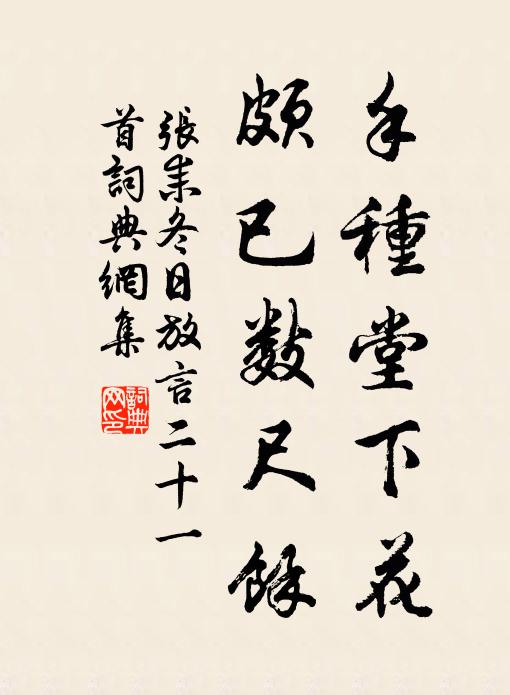 手種堂下花
頗已數尺餘
張耒冬日放言二十一
首詞典網集
詞典
网印